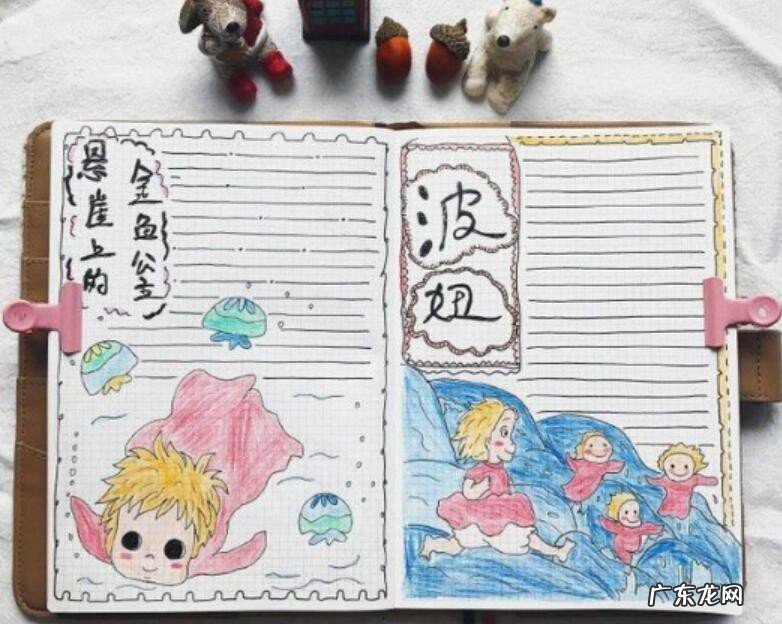 悬崖上的
金鱼公主
波
妞
广东龙网